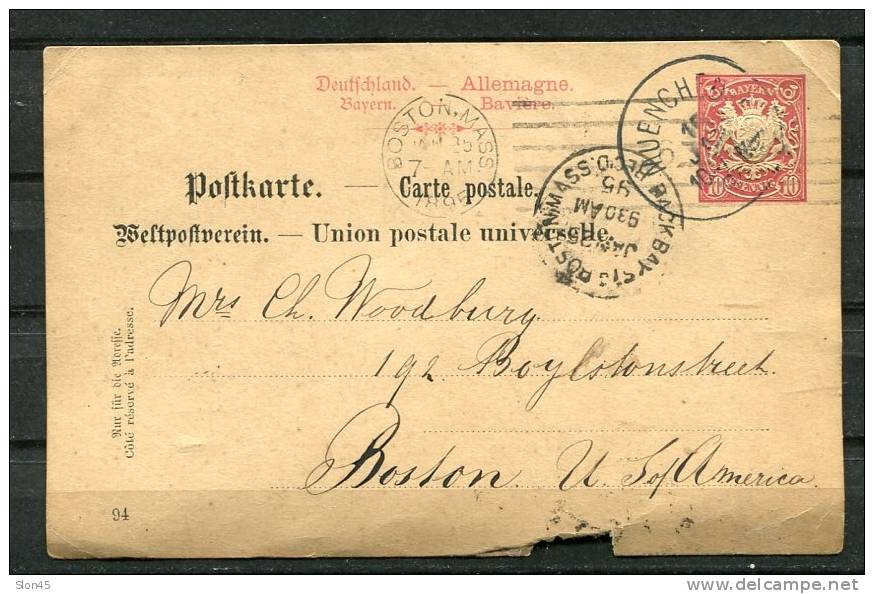 Deutschland. — Allemagne.
Bayern. Bavière.
BAYERN
10 PFENNIG 10
MUENCHEN
BOSTON, MASS
JAN 25
7- AM
1895
BOSTON, MASS. REC'D. BACK BAY
95
930AM
JAN
Postkarte. — Carte postale.
Weltpostverein. — Union postale universelle.
Mrs Ch. Woodbury
192 Boylstonstreet.
Boston. U. S. of America
Nur für die Adresse.
Côté réservé à l'adresse.
94
Slon45
delcampe.net